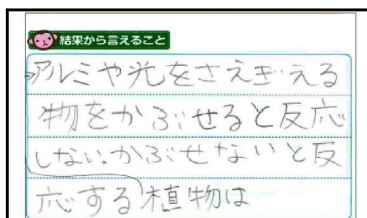 結果から言えること
アルミや光をさえぎえる
物をかぶせると反応
しない。かぶせないと反
応する植物は